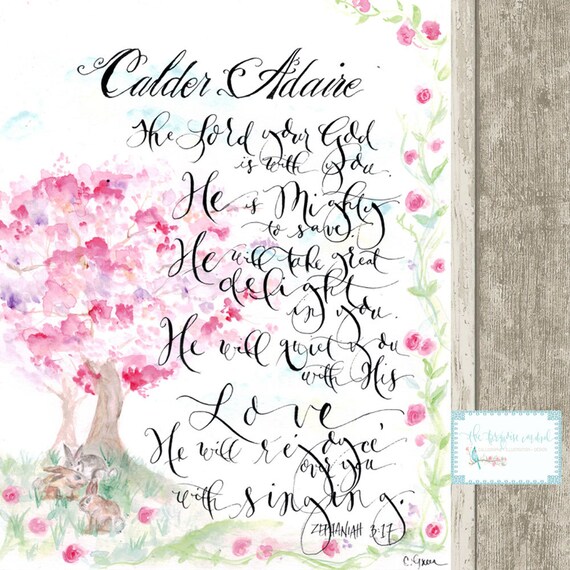 Calder Adaire
The Lord your God
is with you.
He is Mighty
to save.
He will take great
delight
in you.
He will quiet you
with His
Love
He will rejoyce
over you
with singing.
ZEPHANIAH 3:17
C. Green